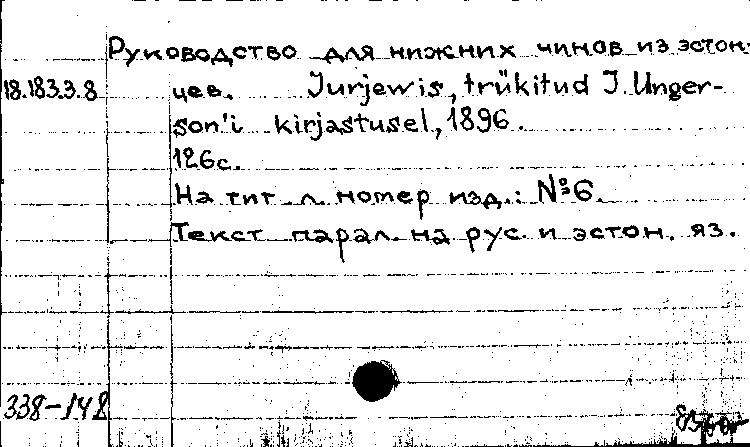 Руководство для нижних чинов из эстон-
18.183.3.8 цев. Jurjewis, trükitud J. Unger-
son'i kirjastusel, 1896.
126с.
На тит. л. номер изд.: №6.
Текст парал. на рус. и эстон. яз.
338-148